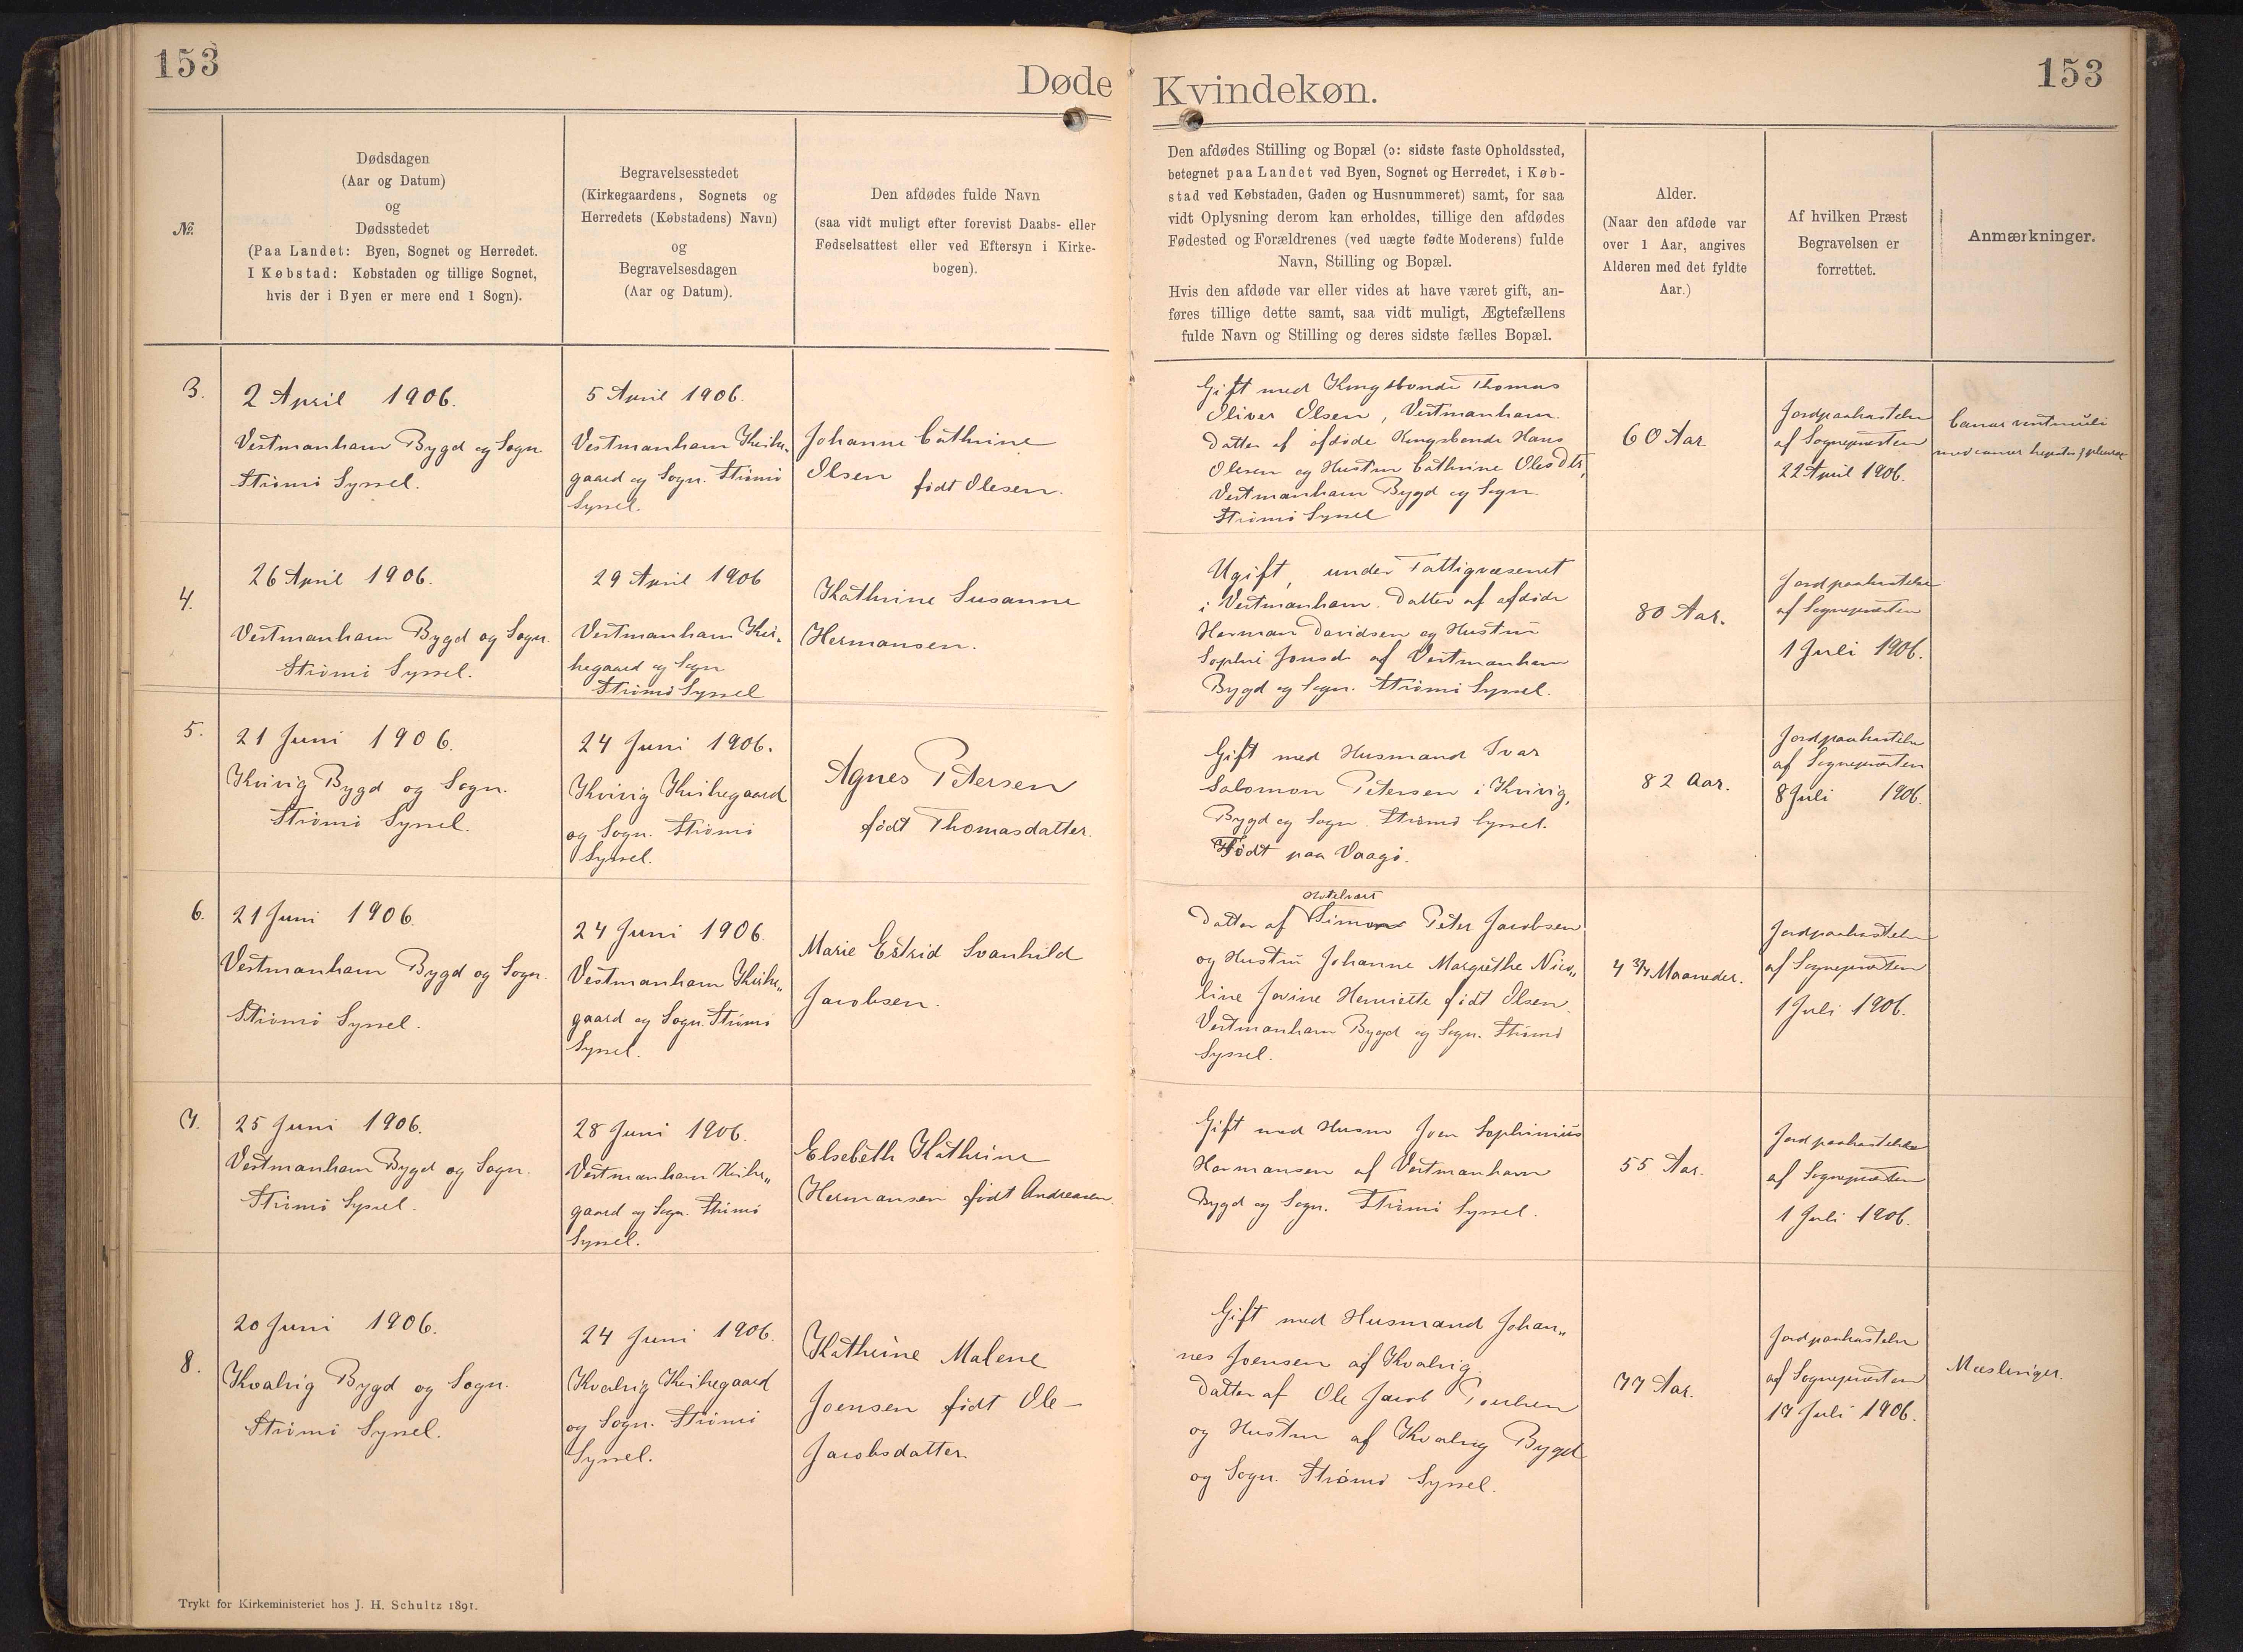 153
Døde
Kvindekøn.
153
№
Dødsdagen
(Aar og Datum)
og
Dødsstedet
(Paa Landet: Byen, Sognet og Herredet.
I Købstad: Købstaden og tillige Sognet,
hvis der i Byen er mere end 1 Sogn).
Begravelsesstedet
(Kirkegaardens, Sognets og
Herredets (Købstadens) Navn)
og
Begravelsesdagen
(Aar og Datum).
Den afdødes fulde Navn
(saa vidt muligt efter forevist Daabs- eller
Fødselsattest eller ved Eftersyn i Kirke-
bogen).
Den afdødes Stilling og Bopæl (ɔ: sidste faste Opholdssted,
betegnet paa Landet ved Byen, Sognet og Herredet, i Køb-
stad ved Købstaden, Gaden og Husnummeret) samt, for saa
vidt Oplysning derom kan erholdes, tillige den afdødes
Fødested og Forældrenes (ved uægte fødte Moderens) fulde
Navn, Stilling og Bopæl.
Hvis den afdøde var eller vides at have været gift, an-
føres tillige dette samt, saa vidt muligt, Ægtefællens
fulde Navn og Stilling og deres sidste fælles Bopæl.
Alder.
(Naar den afdøde var
over 1 Aar, angives
Alderen med det fyldte
Aar.)
Af hvilken Præst
Begravelsen er
forrettet.
Anmærkninger.
3.
2 April 1906.
Vestmanhavn Bygd og Sogn
Strømø Syssel.
5 April 1906.
Vestmanhavn Kirke-
gaard og Sogn. Strømø
Syssel.
Johanne Cathrine
Olsen
født Olesen.
Gift med Kongsbonde Thomas
Oliver Olsen, Vestmanhavn.
Datter af afdøde Kongsbonde Hans
Olesen og Hustru Cathrine Olesdtr,
Vestmanhavn Bygd og Sogn.
Strømø Syssel
60 Aar.
Jordpaakastelse
af Sognepræsten
22 April 1906.
Cancer ventriculi
med cancer hepatis & pleurae
4.
26 April 1906.
Vestmanhavn Bygd og Sogn.
Strømø Syssel.
29 April 1906
Vestmanhavn Kir-
kegaard og Sogn
Strømø Syssel
Kathrine Susanne
Hermansen.
Ugift, under Fattigvæsenet
i Vestmanhavn. Datter af afdøde
Herman Davidsen og Hustru
Sophie Jonsd. af Vestmanhavn
Bygd og Sogn. Strømø Syssel.
80 Aar.
Jordpaakastelse
af Sognepræsten
1 Juli 1906.
5.
21 Juni 1906.
Kvivig Bygd og Sogn.
Strømø Syssel.
24 Juni 1906.
Kvivig Kirkegaard
og Sogn. Strømø
Syssel.
Agnes Petersen
født Thomasdatter.
Gift med Husmand Ivar
Salomon Petersen i Kvivig,
Bygd og Sogn. Strømø Syssel.
Født paa Vaagø.
82 Aar.
Jordpaakastelse
af Sognepræsten
8 Juli 1906.
6.
21 Juni 1906.
Vestmanhavn Bygd og Sogn.
Strømø Syssel.
24 Juni 1906.
Vestmanhavn Kirke„
gaard og Sogn. Strømø
Syssel.
Marie Estrid Svanhild
Jacobsen.
Hotelvært
Datter af Simon Peter Jacobsen
og Hustru Johanne Margrethe Nico„
line Jovine Henriette født Olsen.
Vestmanhavn Bygd og Sogn. Strømø
Syssel.
4 3/4 Maaneder.
Jordpaakastelse
af Sognepræsten
1 Juli 1906.
7.
25 Juni 1906.
Vestmanhavn Bygd og Sogn.
Strømø Syssel.
28 Juni 1906.
Vestmanhavn Kirke„
gaard og Sogn. Strømø
Syssel.
Elsebeth Kathrine
Hermansen født Andreasen.
Gift med Husm Joen Sophinius
Hermansen af Vestmanhavn
Bygd og Sogn. Strømø Syssel.
55 Aar.
Jordpaakastelse
af Sognepræsten
1 Juli 1906.
8.
20 Juni 1906.
Kvalvig Bygd og Sogn.
Strømø Syssel.
24 Juni 1906.
Kvalvig Kirkegaard
og Sogn. Strømø
Syssel.
Kathrine Malene
Joensen født Ole-
Jacobsdatter.
Gift med Husmand Johan„
nes Joensen af Kvalvig.
Datter af Ole Jacob Poulsen
og Hustru af Kvalvig Bygd
og Sogn. Strømø Syssel.
77 Aar.
Jordpaakastelse
af Sognepræsten
17 Juli 1906.
Mæslinger.
Trykt for Kirkeministeriet hos J. H. Schultz 1891.